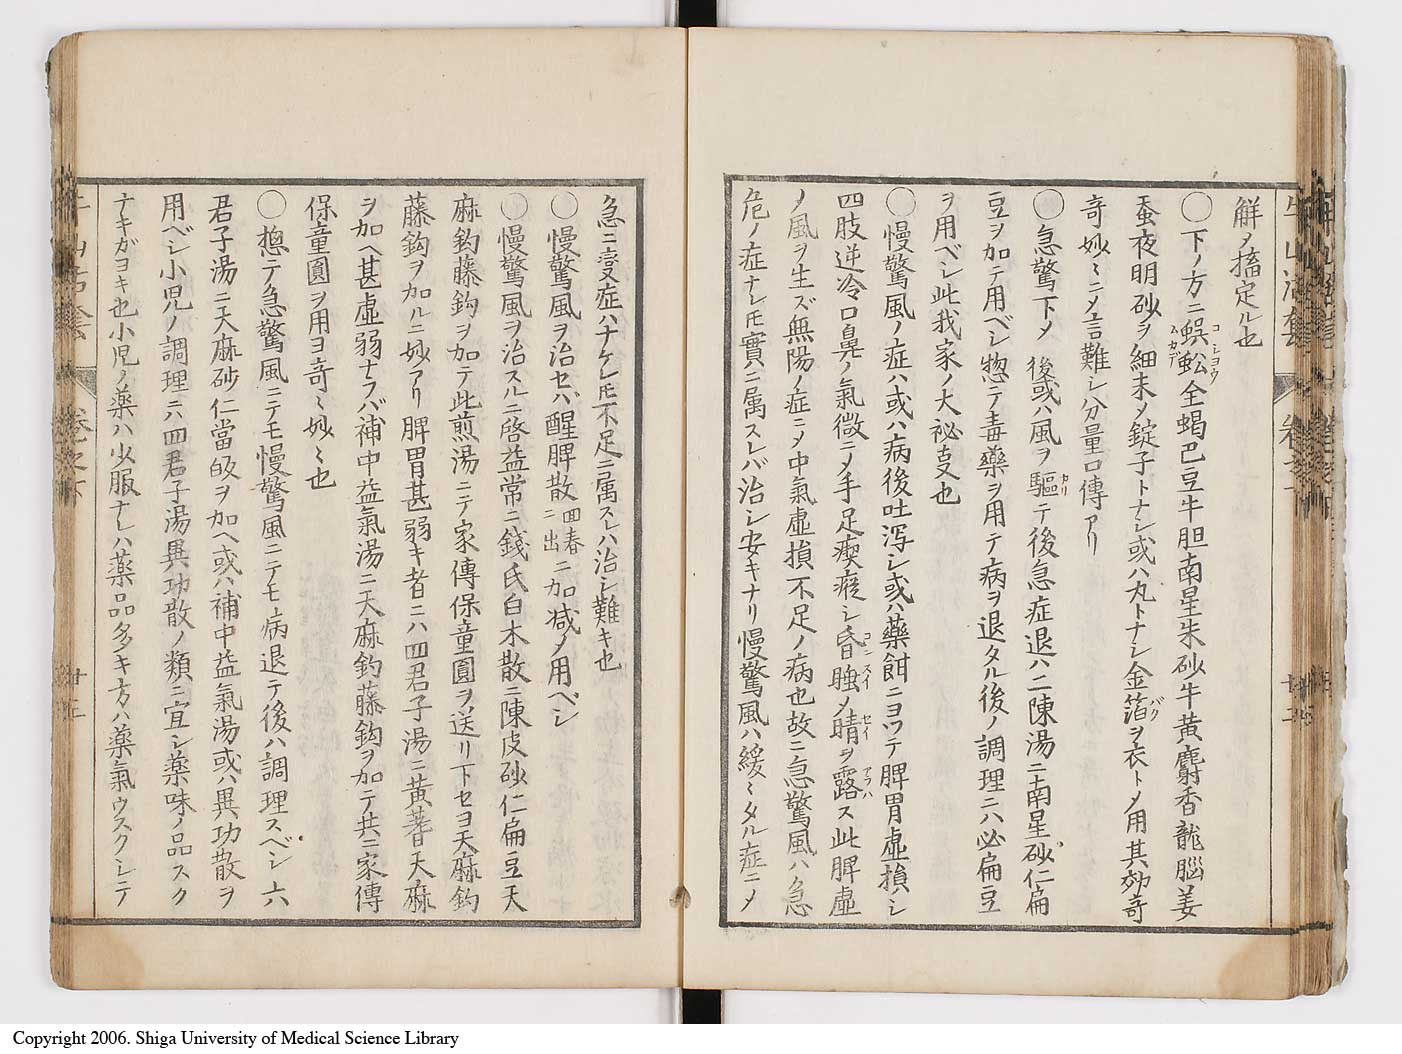 解ノ搐定ル也
〇下ノ方ニ蜈蚣全蝎巴豆牛胆南星朱砂牛黄麝香龍腦姜
蚕夜明砂ヲ細末メ錠子トナシ或ハ丸トナシ金箔ヲ衣トメ用其効奇
奇妙ミニメ言難シ分量口傳アリ
〇急驚下メ後或ハ風ヲ驅テ後急症退ハ二陳湯ニ南星砂仁扁
豆ヲ加テ用ベシ惣テ毒藥ヲ用テ病ヲ退タル後ノ調理ニハ必扁豆
ヲ用ベシ此我家ノ大祕叓也
〇慢驚風ノ症ハ或ハ病後吐瀉シ或ハ藥餌ニヨワテ脾胃虚損シ
四肢逆冷口鼻ノ氣微ニメ手足瘈瘲シ昏睡メ睛ヲ露ス此脾虚
ノ風ヲ生ズ無陽ノ症ニメ中氣虚損不足ノ病也故ニ急驚風ハ急
危ノ症ナレ𪜈實ニ属スレバ治シ安キナリ慢驚風ハ緩ミタル症ニメ
急ニ変症ハナケレ𪜈不足ニ属スレハ治シ難キ也
〇慢驚風ヲ治セバ醒脾散回春ニ出ニ加减メ用ベシ
〇慢驚風ヲ治スルニ啓益常ニ錢氏白木散ニ陳皮砂仁扁豆天
麻釣藤鈎ヲ加テ此煎湯ニテ家傳保童圓ヲ送リ下セヨ天麻釣
藤鈎ヲ加ルニ妙アリ脾胃甚弱キ者ニハ四君子湯ニ黄蓍天麻
ヲ加ヘ甚虚弱ナラバ補中益氣湯ニ天麻釣藤鈎ヲ加テ共ニ家傳
保童圓ヲ用ヨ奇ミ妙ミ也
〇揔テ急驚風ニテモ慢驚風ニテモ病退テ後ハ調理スベシ六
君子湯ニ天麻砂仁當皈ヲ加ヘ或ハ補中益氣湯或ハ異功散ヲ
用ベシ小児ノ調理ニハ四君子湯異功散ノ類ニ宜シ薬味ノ品スク
ナキガヨキ也小児ノ薬ハ少服ナレハ薬品多キ方ハ薬氣ウスクシテ
巻之下
Copyright 2006. Shiga University of Medical Science Library